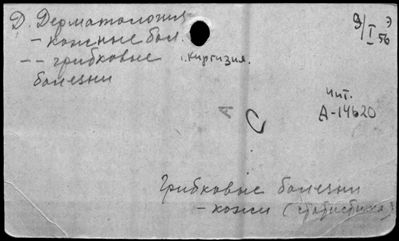 Д. Дерматология
– кожные бол.
– – грибковые г. Киргизия.
болезни
9/I 56
Э
Чит.
А-14620
А
С
Грибковые болезни
– кожи (статистика)